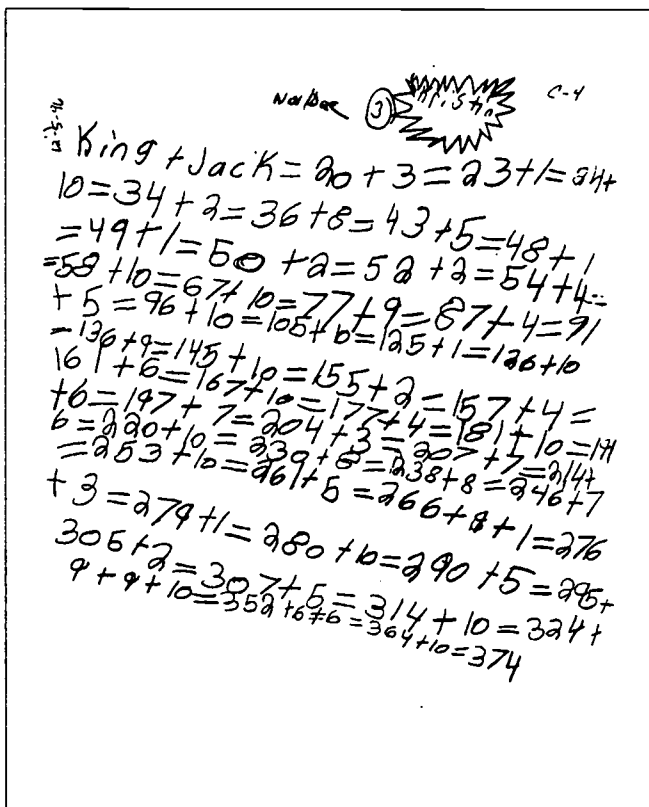 C-4
3
12-5-96
King + Jack = 20 + 3 = 23 + 1 = 24 +
10 = 34 + 2 = 36 + 8 = 43 + 5 = 48 + 1
= 49 + 1 = 50 + 2 = 52 + 2 = 54 + 4 =
= 58 + 10 = 67 + 10 = 77 + 9 = 87 + 4 = 91
+ 5 = 96 + 10 = 105 + 10 = 125 + 1 = 126 + 10
= 136 + 9 = 145 + 10 = 155 + 2 = 157 + 4 =
161 + 6 = 167 + 10 = 177 + 4 = 181 + 10 = 191
+ 6 = 197 + 7 = 204 + 3 = 207 + 7 = 214 +
6 = 220 + 10 = 239 + 8 = 238 + 8 = 246 + 7
= 253 + 10 = 261 + 5 = 266 + 9 + 1 = 276
+ 3 = 279 + 1 = 280 + 10 = 290 + 5 = 295 +
305 + 2 = 307 + 5 = 314 + 10 = 324 +
9 + 9 + 10 = 352 + 6 + 6 = 364 + 10 = 374